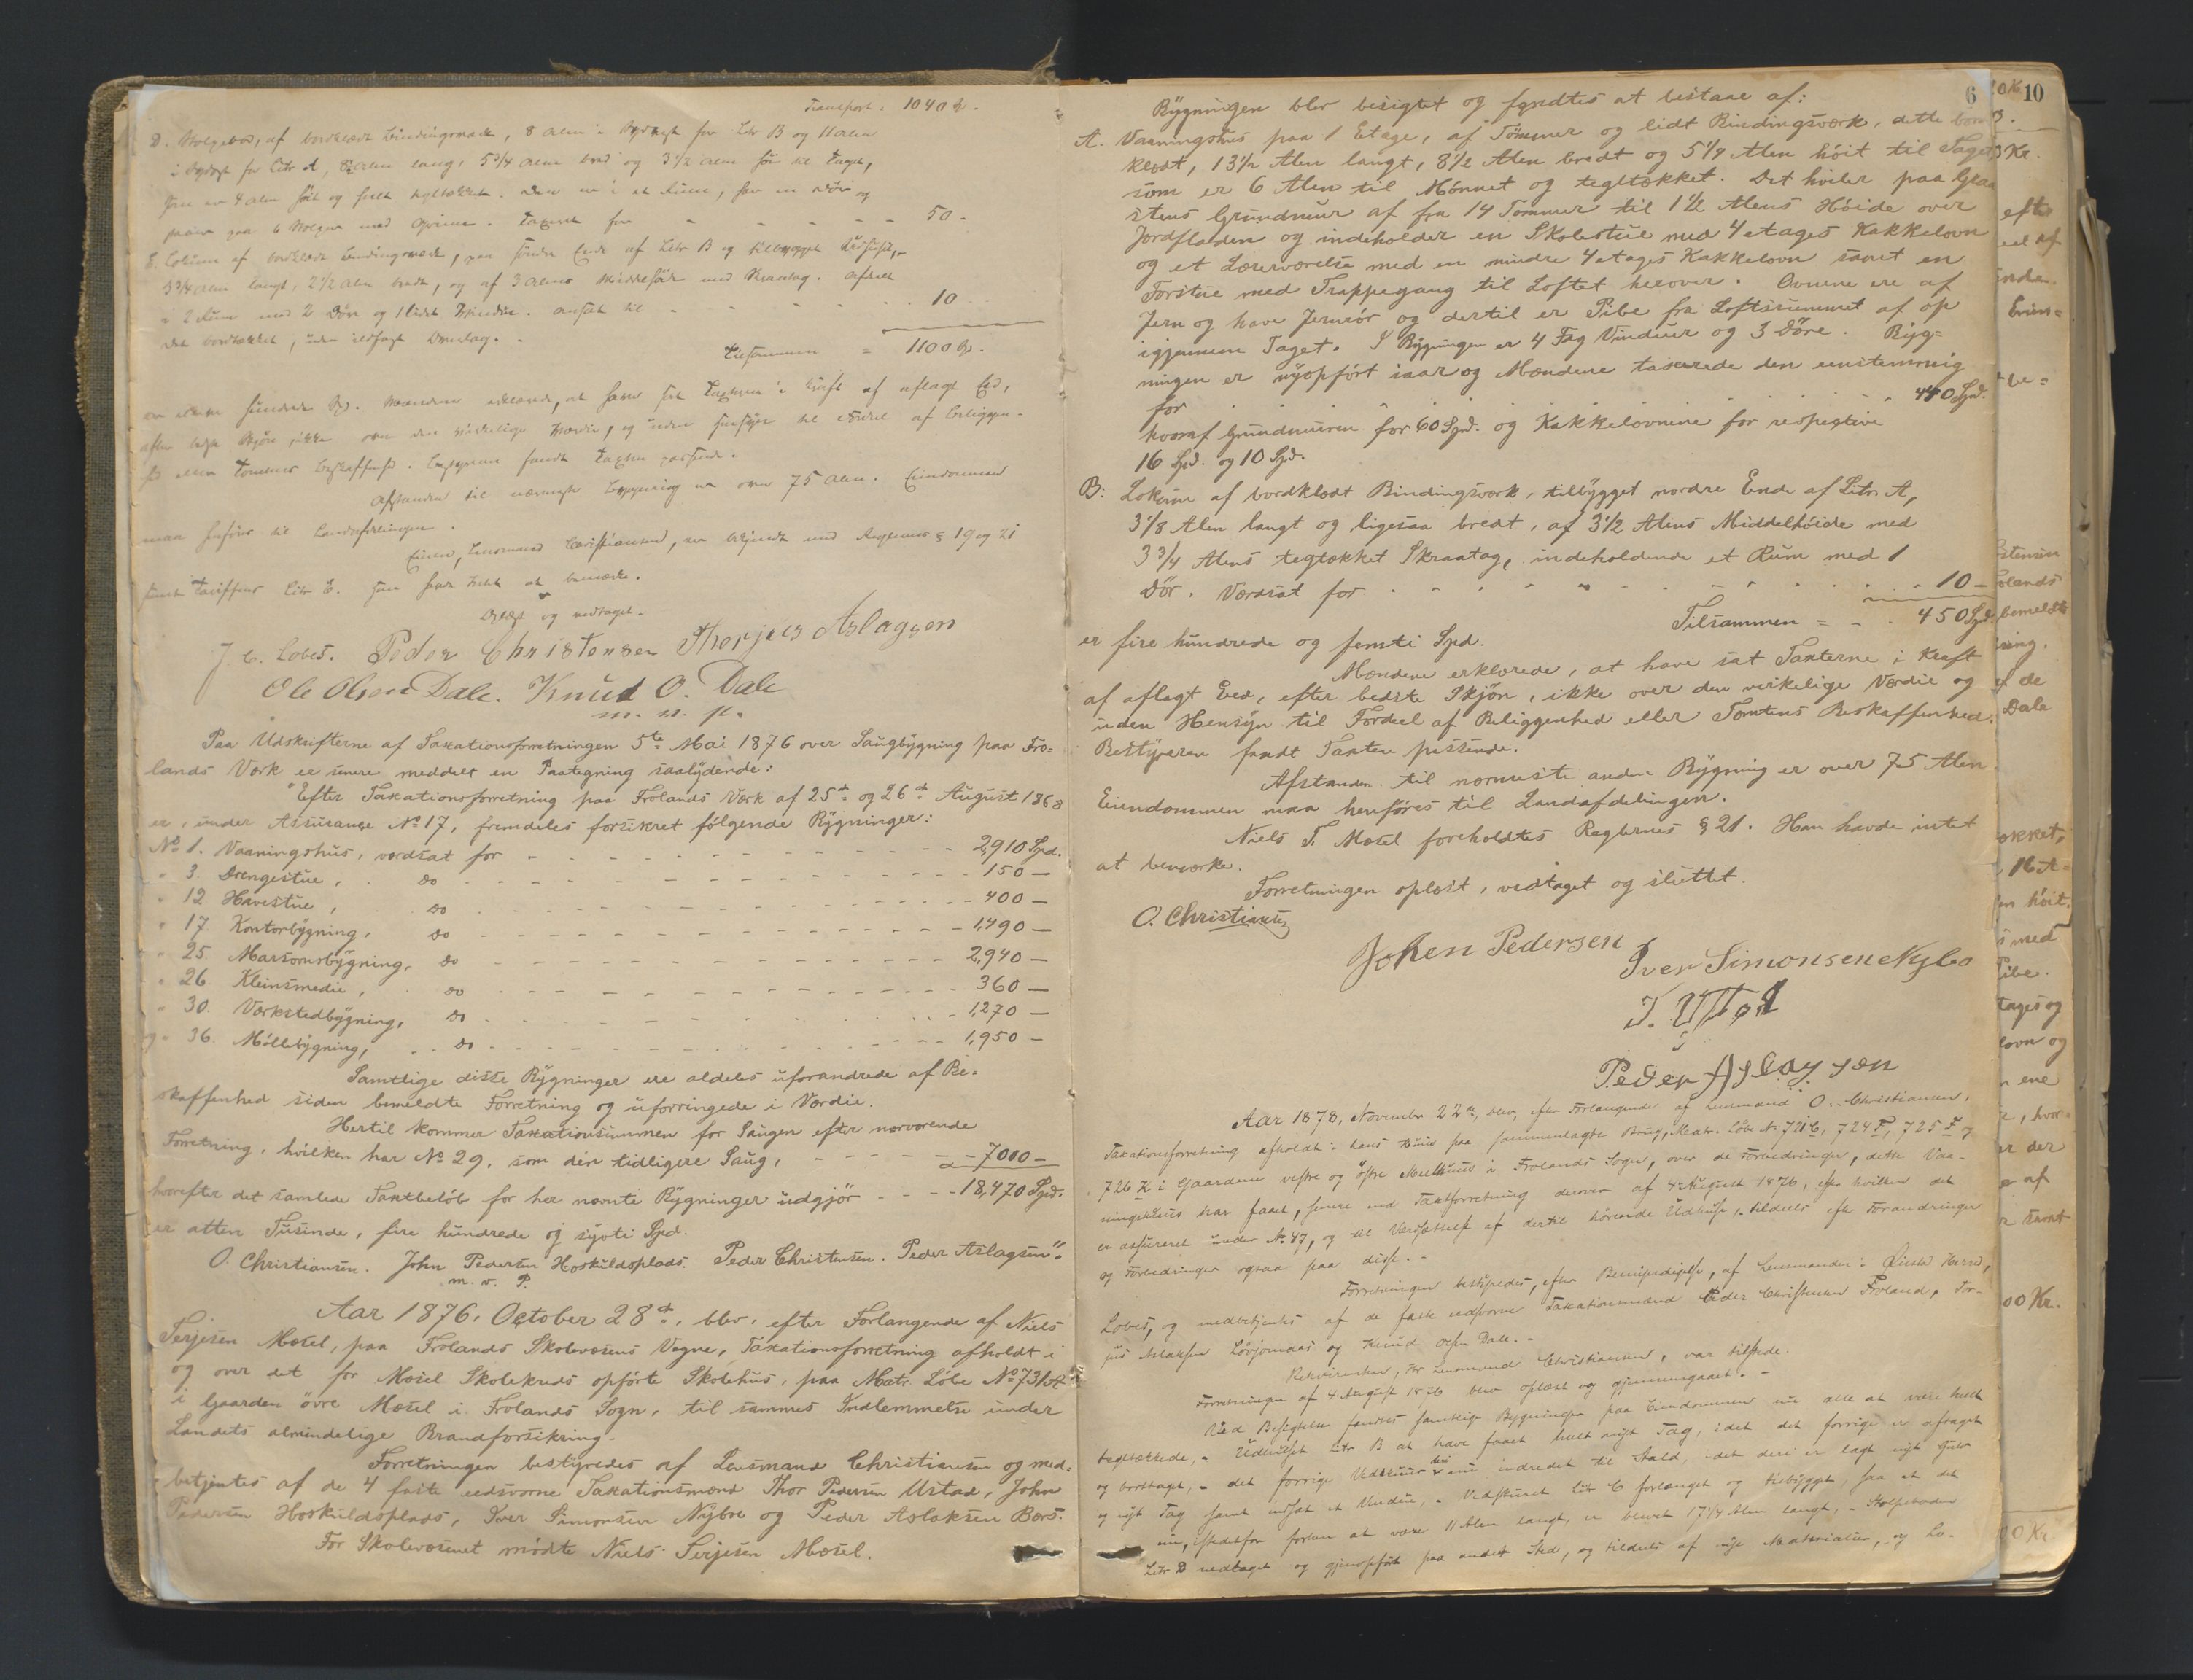 Transport. 1040 Sp.
D. Stolpebod, af bordklædt Bindingsværk, 8 Alen i Sydvest for Litr B og 11 Alen
i Sydost for Litr A, Alen lang, 5 3/4 Alen bred og 3 1/2 Alen høi til Taget,
som er 4 Alen høit og heelt tegltækket. Den er i et Rum, har en Dør og
staar paa 6 Stolper med . Taxeret for - - - - - 50 -
E. Lokum af bordklædt Bindingsværk, paa søndre Ende af Litr B og tilbygget ,
3 3/4 Alen langt, 2 1/2 Alen bredt, og af 3 Alens Middelhøide med Skraatag. Afdeelt
i 2 Rum med 2 Døre og 1 lidet Vindue. Ansat til - - - - - 10
Det bordtækket, uden Omslag. -
Tilsammen = 1100 Sp.
er elleve hundrede Sp. Mændene erklærede, at have sat Taxterne i Kraft af aflagt Eed,
efter bedste Skjøn, ikke over den virkelige Værdie, og uden Hensyn til Fordeel af Beliggen-
hed eller Tomtens Beskaffenhed. Bestyreren fandt Taxten passende.
Afstanden til nærmeste Bygning er over 75 Alen. Eiendommen
maa henføres til Landafdelingen.
Eieren, Lensmand Christiansen, er bekjendt med Reglernes § 19 og 21
samt Tariffens Litr E. Han havde Intet at bemærke.
Oplæst og vedtaget.
J. C. Lobes. Peder Christensen Thorjus Aslagsen
Ole Olsen Dale. Knud O. Dale
m. v. p.
Paa Udskrifterne af Taxationsforretningen 5te Mai 1876 over Saugbygning paa Fro=
lands Værk er senere meddelt en Paategning saalydende:
"Efter Taxationsforretning paa Frolands Værk af 25de og 26de August 1868
er, under Assurance No 17, fremdeles forsikret følgende Bygninger:
No 1. Vaaningshus, værdsat for - - - - - 2,910 Spd.
" 3. Drengestue, do - - - - - 150 —
" 12 Havestue, do - - - - - 400 —
" 17. Kontorbygning, do - - - - - 1,490 —
" 25. Marsovnsbygning, do - - - - - 2,940 —
" 26. Kleinsmedie, do - - - - - 360 —
" 30. Værkstedbygning, do - - - - - 1,270 —
og " 36. Möllebygning, do - - - - - 1,950 —
Samtlige disse Bygninger ere aldeles uforandrede af Be-
skaffenhed siden bemeldte Forretning og uforringede i Værdie.
Hertil kommer Taxationssummen for Saugen efter nærværende
Forretning, hvilken har No 29, som den tidligere Saug, - - - - - 7000 —
hvorefter det samlede Taxtbeløb for her nævnte Bygninger udgjör - - - - 18,470 Spd.
er atten Tusinde, fire hundrede og syvti Spd.
O. Christiansen. John Pedersen Hoskuldsplads. Peder Christensen. Peder Aslagsen".
m. v. P.
Aar 1876, October 28de, blev, efter Forlangende af Niels
Terjesen Mosel, paa Frolands Skolevæsens Vegne, Taxationsforretning afholdt i
og over det for Mosel Skolekreds opförte Skolehus, paa Matr. Löbe No 731A
i Gaarden övre Mosel i Frolands Sogn, til sammes Indlemmelse under
Landets almindelige Brandforsikring.
Forretningen bestyredes af Lensmand Christiansen og med-
betjentes af de 4 faste eedsvorne Taxationsmænd Thor Pedersen Ustad, John
Pedersen Hoskuldsplads, Iver Simonsen Nybo og Peder Aslaksen Bors.
For Skolevæsenet mödte Niels Terjesen Mosel.
6
10
Bygningen blev besigtet og fandtes at bestaae af:
A. Vaaningshus paa 1 Etage, af Tömmer og lidt Bindingsværk, dette bord
klædt, 13 1/2 Alen langt, 8 1/2 Alen bredt og 5 1/4 Alen höit til Taget,
som er 6 Alen til Mönnet og tegltækket. Det hviler paa Graa
stens Grundmuur af fra 14 Tommer til 1 1/2 Alens Höide over
Jordfladen og indeholder en Skolestue med 4 etages Kakkelovn
og et Læreværelse med en mindre 4 etages Kakkelovn samt en
Forstue med Trappegang til Loftet herover. Ovnene ere af
Jern og have Jernrör og dertil er Pibe fra Loftsrummet af op
igjennem Taget. I Bygningen er 4 Fag Vinduer og 3 Döre. Byg=
ningen er nyopfört iaar og Mændene taxerede den eenstemmig
for . . . . . 440 Spd.
hvoraf Grundmuren for 60 Spd. og Kakkelovnene for respective
16 Spd. og 10 Spd.
B: Lokum af bordklædt Bindingsværk, tilbygget nordre Ende af Litr A,
3 1/8 Alen langt og ligesaa bredt, af 3 1/2 Alens Middelhöide med
3 3/4 Alens tegtækket Skraatag, indeholdende et Rum med 1
Dör. Værdsat for - - - - - 10 —
Tilsammen = - . 450 Spd.
er fire hundrede og femti Spd.
Mændene erklærede, at have sat Taxterne i Kraft
af aflagt Eed, efter bedste Skjön, ikke over den virkelige Værdie og
uden Hensyn til Fordeel af Beliggenhed eller Tomtens Beskaffenhed.
Bestyreren fandt Taxten passende.
Afstanden til nærmeste anden Bygning er over 75 Alen.
Eiendommen maa henföres til Landafdelingen.
Niels T. Mosel foreholdtes Reglernes § 21. Han havde intet
at bemærke.
Forretningen oplæst, vedtaget og sluttet.
O. Christiansen
Johen Pedersen Iver Simonsen Nybo
T. Ustad
Peder Aslagsen
Aar 1878, November 22de, blev, efter Forlangende af Lensmand O. Christiansen,
Taxationsforretning afholdt i hans Huus paa sammenlagte Brug, Matr. Løbe No 721C, 724F, 725F og
726K i Gaardene vestre og østre Mellhuus i Frolands Sogn, over de Forbedringer, dette Vaa-
ningshuus har faaet, senere end Taxtforretning derover af 4 August 1876, efter hvilken det
er assureret under No 47, og til Værdsættelse af dertil hørende Udhuse, tildeels efter Forandringer
og Forbedringer ogsaa paa disse. -
Forretningen bestyredes, efter , af Lensmanden i ,
Lobes, og medbetjentes af de faste eedsvorne Taxationsmænd Peder Christensen Froland, Tor-
jus Aslaksen Løvjomaas og Knud Olsen Dale. -
Rekvirenten, Hr Lensmand Christiansen, var tilstede.
Forretningen af 4 August 1876 blev oplæst og gjennemgaaet. -
Ved Besigtelsen fandtes samtlige Bygninger paa Eiendommen nu alle at være heelt
tegltækkede, - Udhuset Litr B at have faaet heelt nyt Tag, idet det forrige er aftaget
og borttaget, - det forrige Vedskuur deri er nu indredet til Stald, idet deri er lagt nyt Gulv
og nyt Tag samt indsat et Vindue, - Vedskuret Litr C forlænget og tilbygget, saa at det
nu, istedetfor forhen at være 11 Alen langt, er blevet 17 1/4 Alen langt, - Stolpeboden
Litr D nedtaget og gjenopført paa andet Sted, og tildeels af nye Materialier, og Lo-